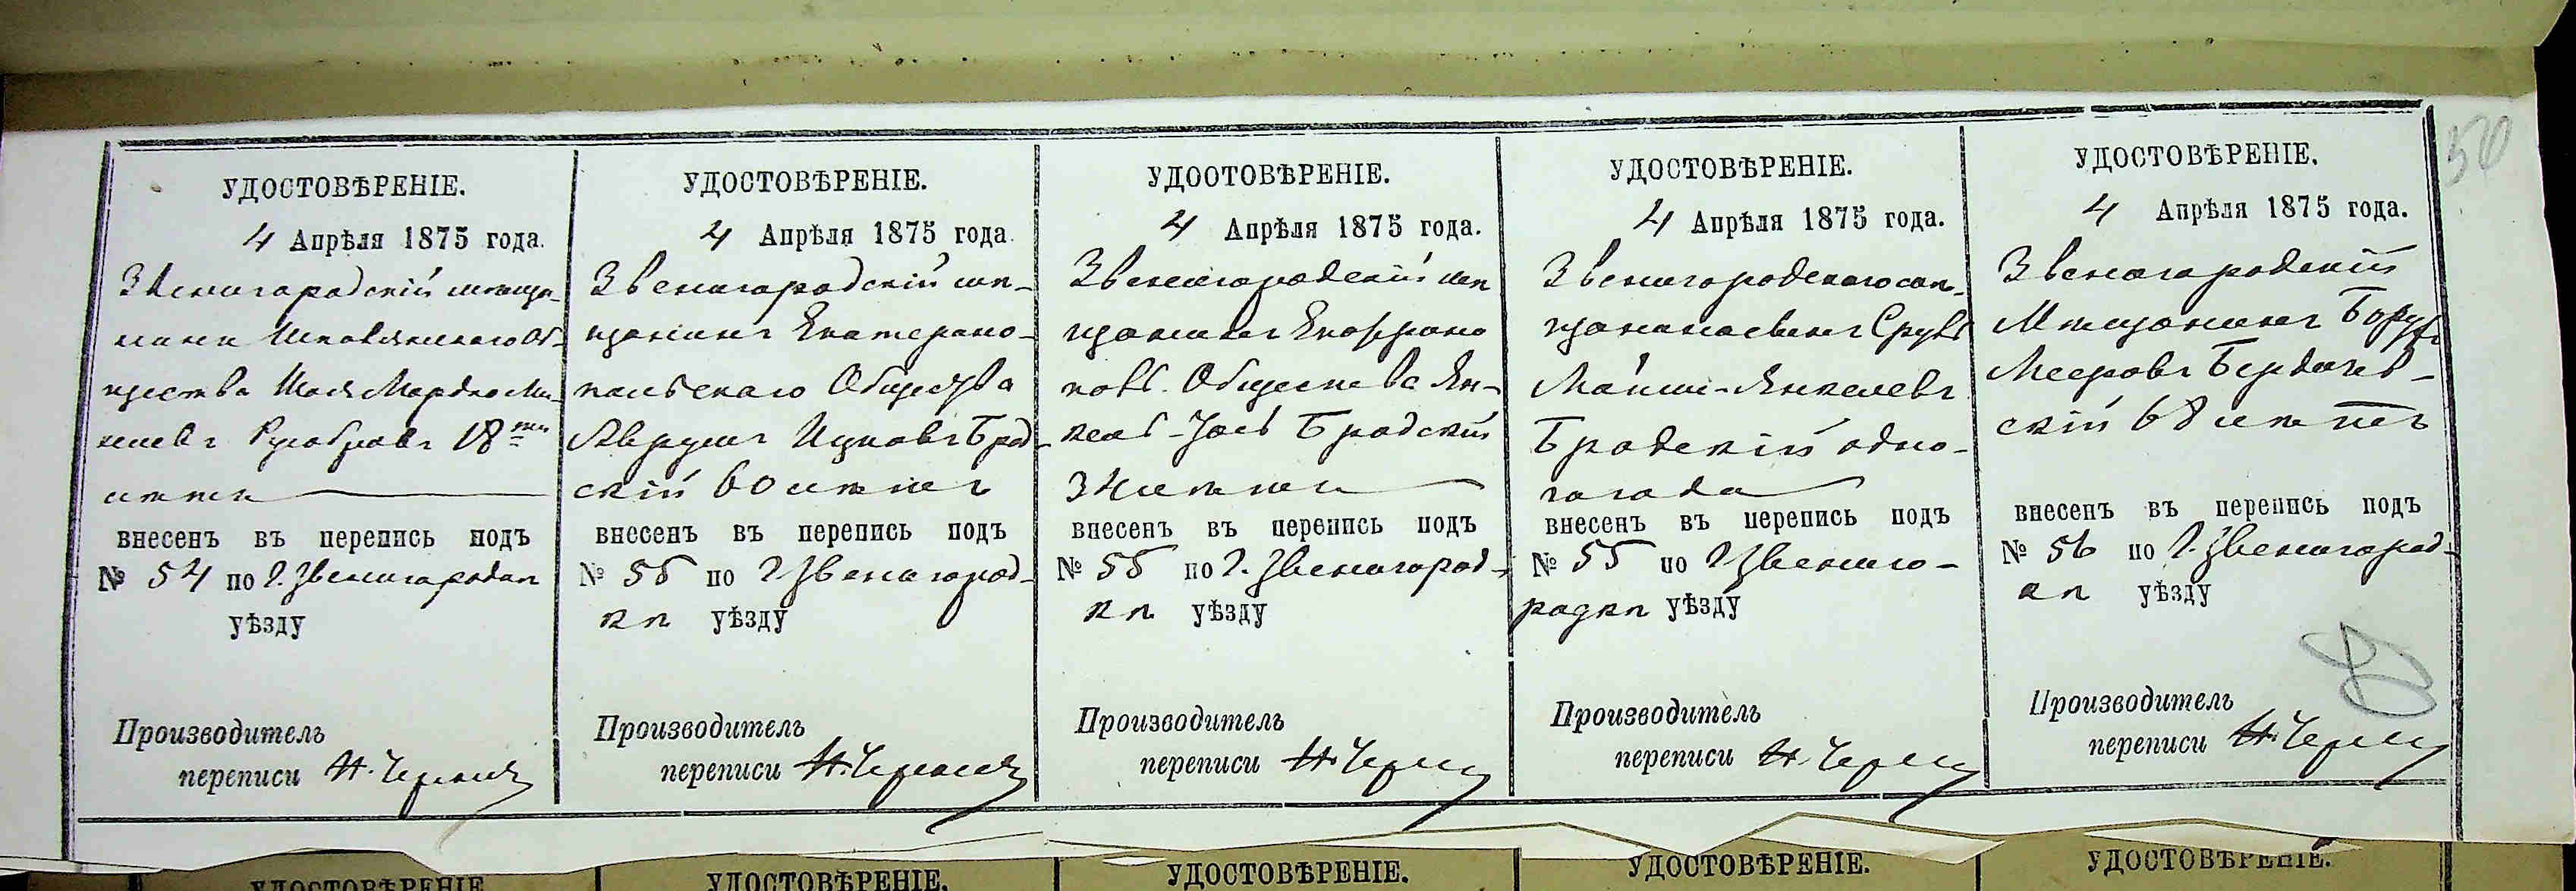 50
УДОСТОВѢРЕНІЕ.
4 Апрѣля 1875 года.
Звенигородскій мѣща-
нинъ Шполянскаго Об-
щества Шая Мордко Ми-
18ти
лѣтъ
внесенъ въ перепись подъ
№ 54 по г. Звенигородкѣ
уѣзду
Производитель
переписи Н.
УДОСТОВѢРЕНІЕ.
4 Апрѣля 1875 года.
Звенигородскій мѣ-
щанинъ Екатерино-
польскаго Общества
Аврумъ Ицковъ Брод-
скій 60 лѣтъ
внесенъ въ перепись подъ
№ 55 по г Звенигород-
кѣ уѣзду
Производитель
переписи Н.
УДООТОВѢРЕНІЕ.
4 Апрѣля 1875 года.
Звенигородскій мѣ
щанинъ Екатерино
Общества Ян-
кель-Іось Бродскій
34 лѣтъ
внесенъ въ перепись подъ
№ 55 по г. Звенигород-
кѣ уѣзду
Производитель
переписи Н.
УДОСТОВѢРЕНІЕ.
4 Апрѣля 1875 года.
Звенигородскаго
Сруль
Янкелевъ
Бродскій одно-
го года
внесенъ въ перепись подъ
№ 55 по г Звениго-
родкѣ уѣзду
Производитель
переписи Н.
УДОСТОВѢРЕНІЕ.
4 Апрѣля 1875 года.
Звенигородскій
Мѣщанинъ Борухъ
Мееровъ Бердичев-
скій 68 лѣтъ
внесенъ въ перепись подъ
№ 56 по г. Звенигород-
кѣ уѣзду
Производитель
переписи Н.
УДОСТОВѢРЕНІЕ
УДОСТОВѢРЕНІЕ.
УДОСТОВѢРЕНІЕ.
УДОСТОВѢРЕНІЕ.
УДОСТОВѢРЕНІЕ.